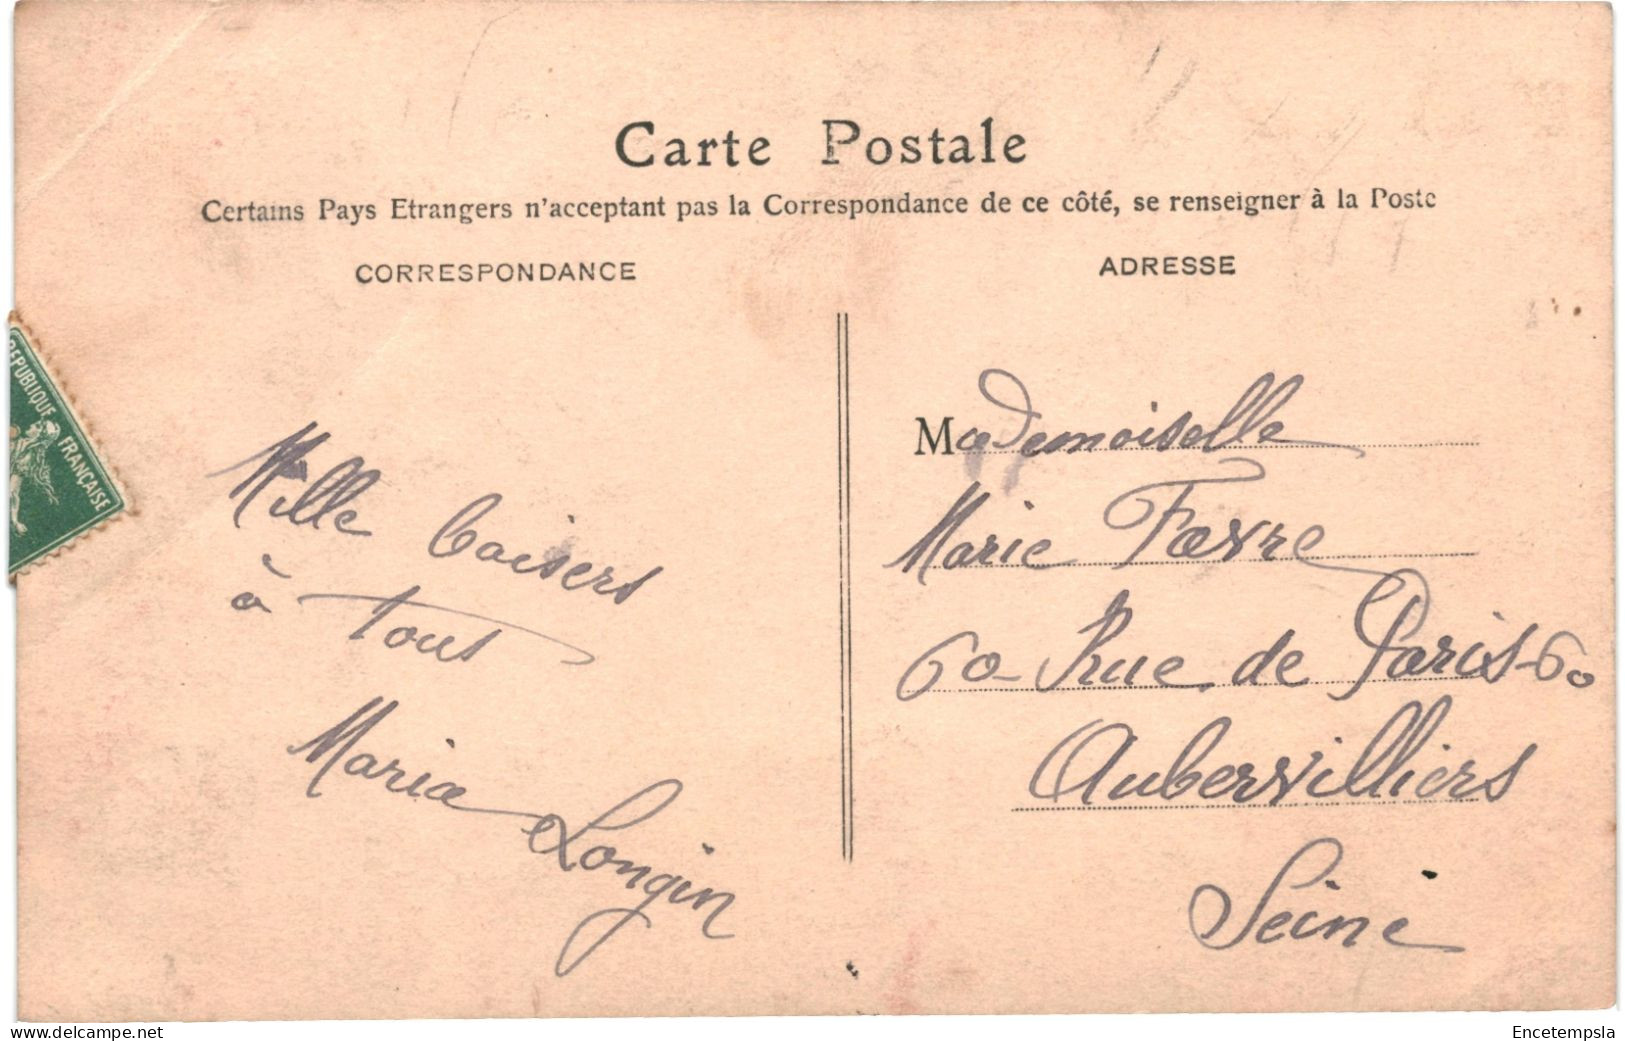 Carte Postale
Certains Pays Etrangers n'acceptant pas la Correspondance de ce côté, se renseigner à la Poste
CORRESPONDANCE
ADRESSE
REPUBLIQUE
FRANÇAISE
Mille baisers
à tous
Maria Longin
Mademoiselle
Marie Favre
60 - Rue de Paris - 60
Aubervilliers
Seine
delcampe.net
Encetempsla